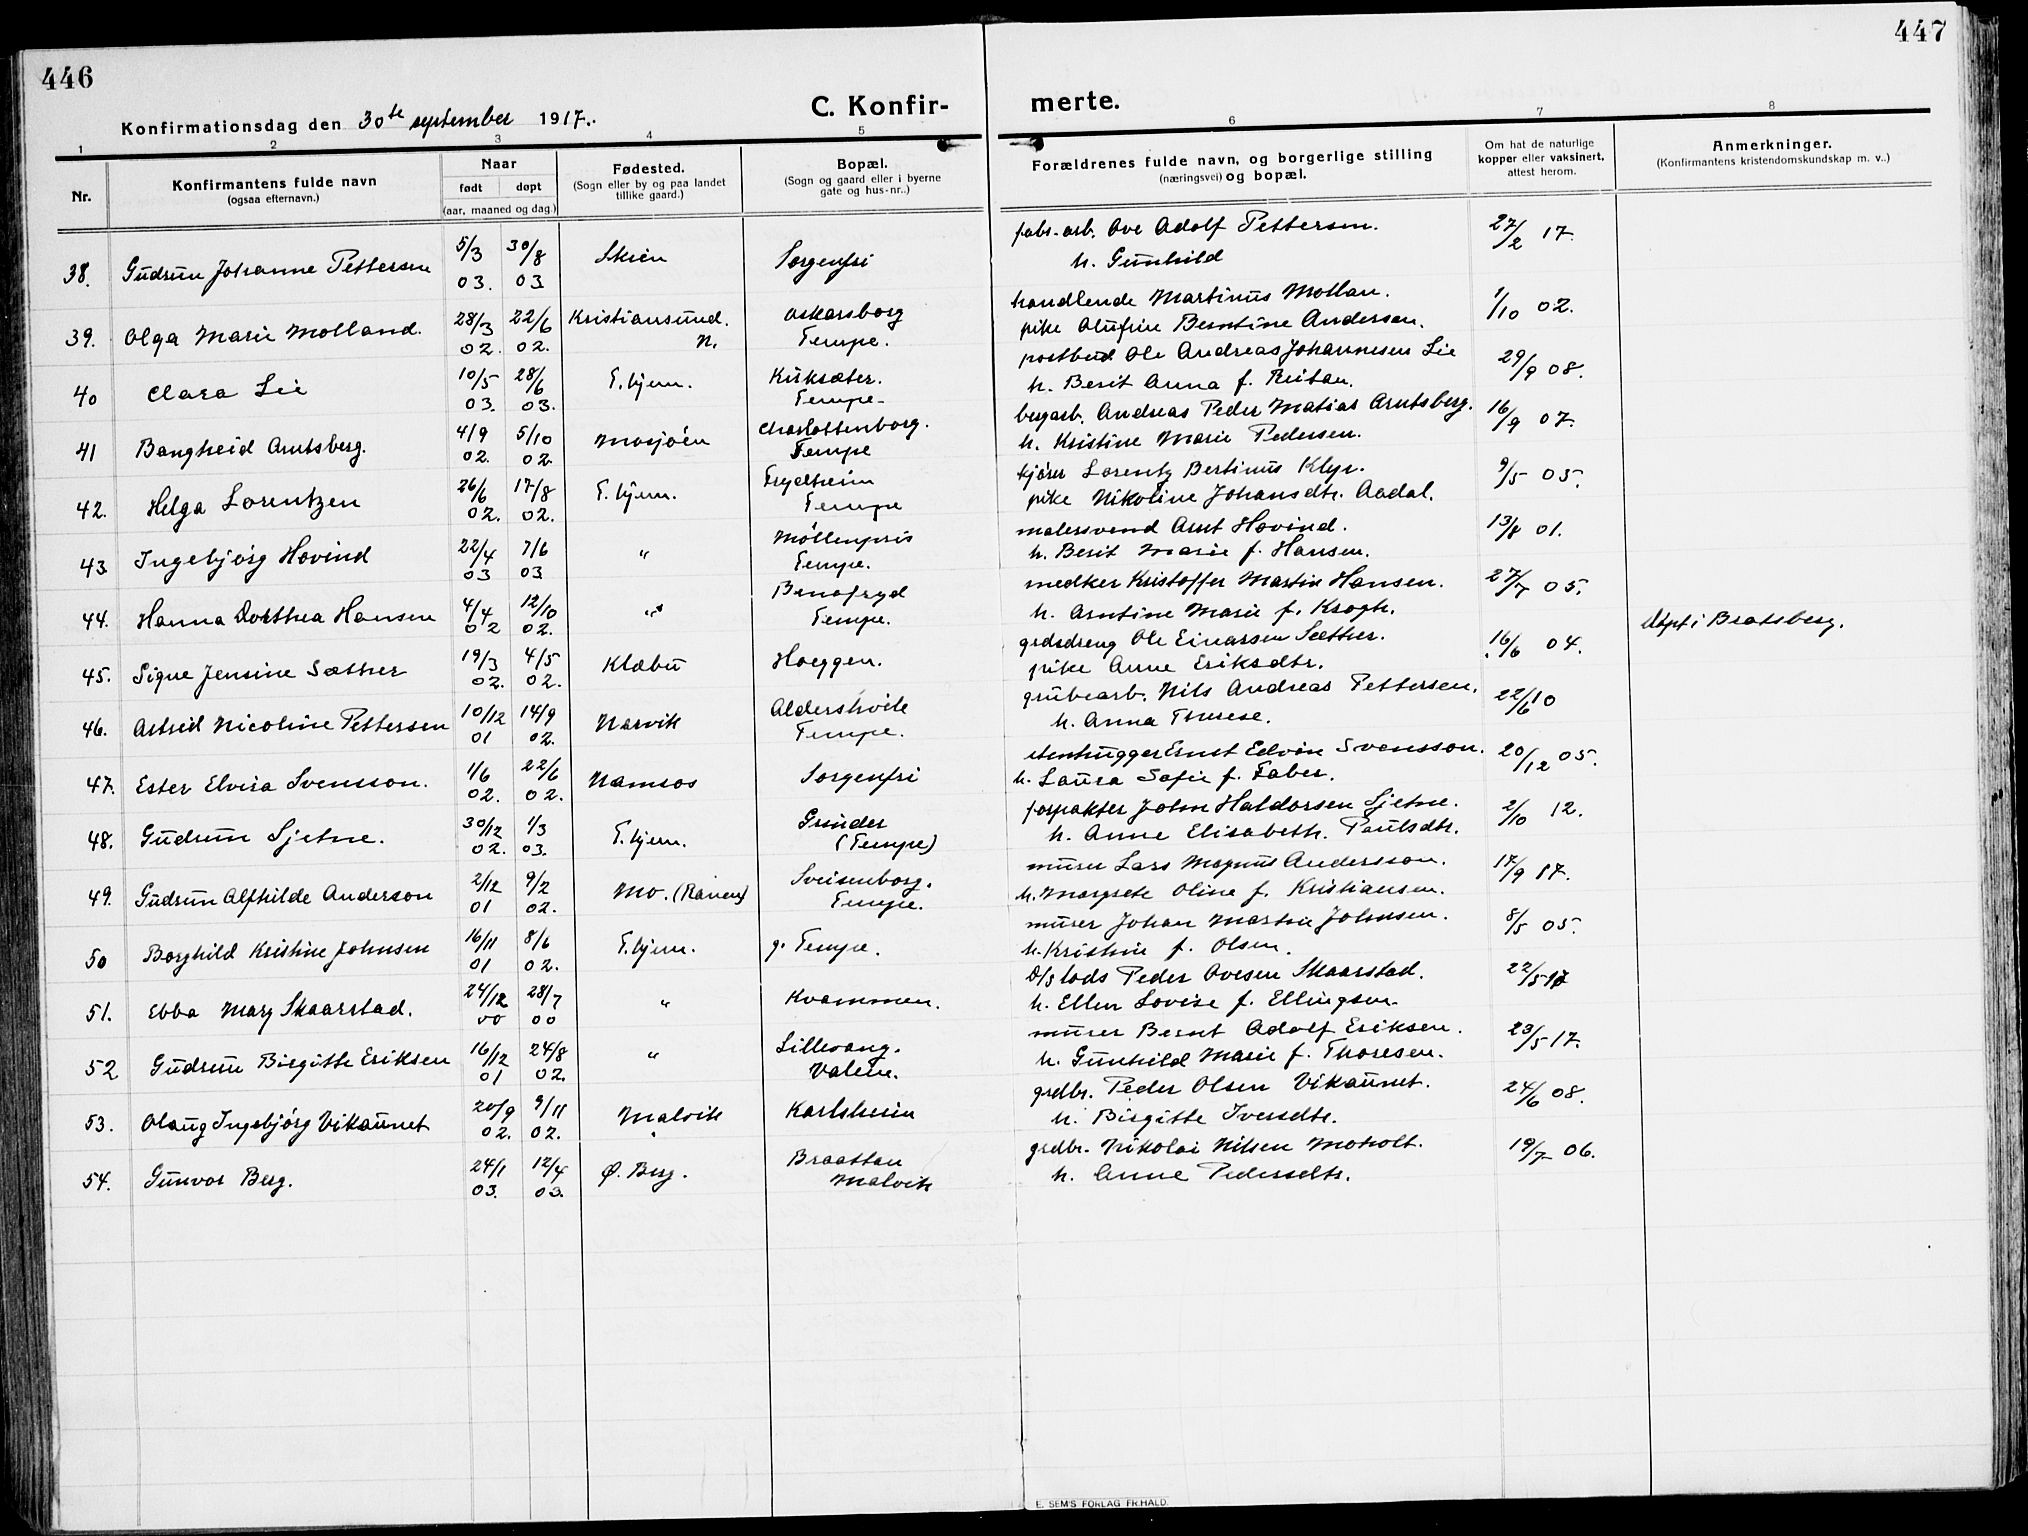 446
447
Konfirmationsdag den 30te september 1917.
C. Konfir- merte.
1 2 3 4 5 6 7 8
Nr.
Konfirmantens fulde navn
(ogsaa efternavn.)
Naar
født døpt
(aar, maaned og dag.)
Fødested.
(Sogn eller by og paa landet
tillike gaard.)
Bopæl.
(Sogn og gaard eller i byerne
gate og hus-nr..)
Forældrenes fulde navn, og borgerlige stilling
(næringsvei) og bopæl.
Om hat de naturlige
kopper eller vaksinert,
attest herom.
Anmerkninger.
(Konfirmantens kristendomskundskap m. v..)
38. Gudrun Johanne Pettersen 5/3 03. 30/8 03 Skien Sorgenfri fabr. arb. Ove Adolf Pettersen. 27/2 17.
h. Gunhild
39. Olga Marie Molland. 28/3 02. 22/6 02. Kristiansund. Oskarsborg handlende Martinus Mollan. 1/10 02.
N. Tempe. pike Olufine Berntine Andersen.
40 Clara Lie 10/5 03. 28/6 03. T.hjem. Kuksæter. postbud Ole Andreas Johannesen Lie 29/9 08.
Tempe h. Berit Anna f. Reitan.
41 Bangheid Arntsberg. 4/9 02. 5/10 02. Mosjøen Charlottenborg. bergarb. Andreas Peder Matias Arntsberg. 16/9 07.
Tempe h. Kristine Marie Pedersen.
42. Helga Lorentzen 26/6 02. 17/8 02. T.hjem. Frydheim kjører Lorentz Bertinus Klyx. 9/5 05.
Tempe pike Nikoline Johansdtr. Aadal.
43 Ingebjørg Hovind 22/4 03 7/6 03 " Möllenpris malersvend Arnt Hovind. 13/8 01.
Tempe. h. Berit Marie f. Hansen.
44. Hanna Dorthea Hansen 4/4 02 12/10 02. " Benofryd snedker Kristoffer Martin Hansen. 27/7 05.
Tempe. h. Arntine Marie f. Krogh.
45. Signe Jensine Sæther 19/3 02. 4/5 02. Klæbu Hoeggen. grdsdreng Ole Einarsen Sæther. 16/6 04. døpt i Bratsberg.
pike Anne Eriksdtr.
46. Astrid Nicoline Pettersen 10/12 01 14/9 02. Narvik Aldershvile grubearb. Nils Andreas Pettersen. 22/6 10
Tempe. h. Anna Therese.
47. Ester Elvira Svensson. 1/6 02. 22/6 02. Namsos Sorgenfri stenhugger Ernst Edvin Svensson. 20/12 05.
h. Laura Sofie f. Faber.
48. Gudrun Sjetne. 30/12 02. 1/3 03. T.hjem. Grinder forpakter John Haldorsen Sjetne. 2/10 12.
(Tempe) h. Anne Elisabeth. Paulsdtr.
49. Gudrun Alfhilde Anderson 2/12 01 9/2 02. Mo. (Ranen) Sveisenborg. murer Lars Magnus Andersson. 17/9 17.
Tempe. h. Margrete Oline f. Kristiansen.
50 Borghild Kristine Johnsen 16/11 01 8/6 02. T.hjem. g. Tempe. murer Johan Martin Johnsen. 8/5 05.
h. Kristine f. Olsen.
51. Ebba Mary Skaarstad. 24/12 00 28/7 00 " Kvammen. D/s lods Peder Ovesen Skaarstad. 22/5 17
h. Ellen Lovise f. Ellingsen.
52 Gudrun Birgitte Eriksen 16/12 01 24/8 02. " Lillevang. murer Bernt Adolf Eriksen. 23/5 17.
Valene. h. Gunhild Marie f. Thoresen.
53. Olaug Ingebjørg Vikaunet 20/9 02. 9/11 02. Malvik Karlsheim grdbr. Peder Olsen Vikaunet. 24/6 08.
h. Birgitte Iversdtr.
54. Gunvor Berg. 24/1 03. 12/4 03. Ø. Berg. Braattan grdbr. Nikolai Nilsen Moholt. 19/7 06.
Malvik h. Anne Pedersdtr.
E. SEM'S FORLAG FR.HALD.